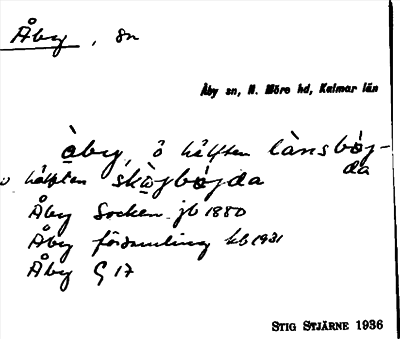 Åby, sn
Åby sn, N. Möre hd, Kalmar län
å̀by, å hälften lànsbøj-
da
o hälften skò̀gbøjda
Åby Socken jb 1880
Åby församling kb 1931
Åby G 17
STIG STJÄRNE 1936